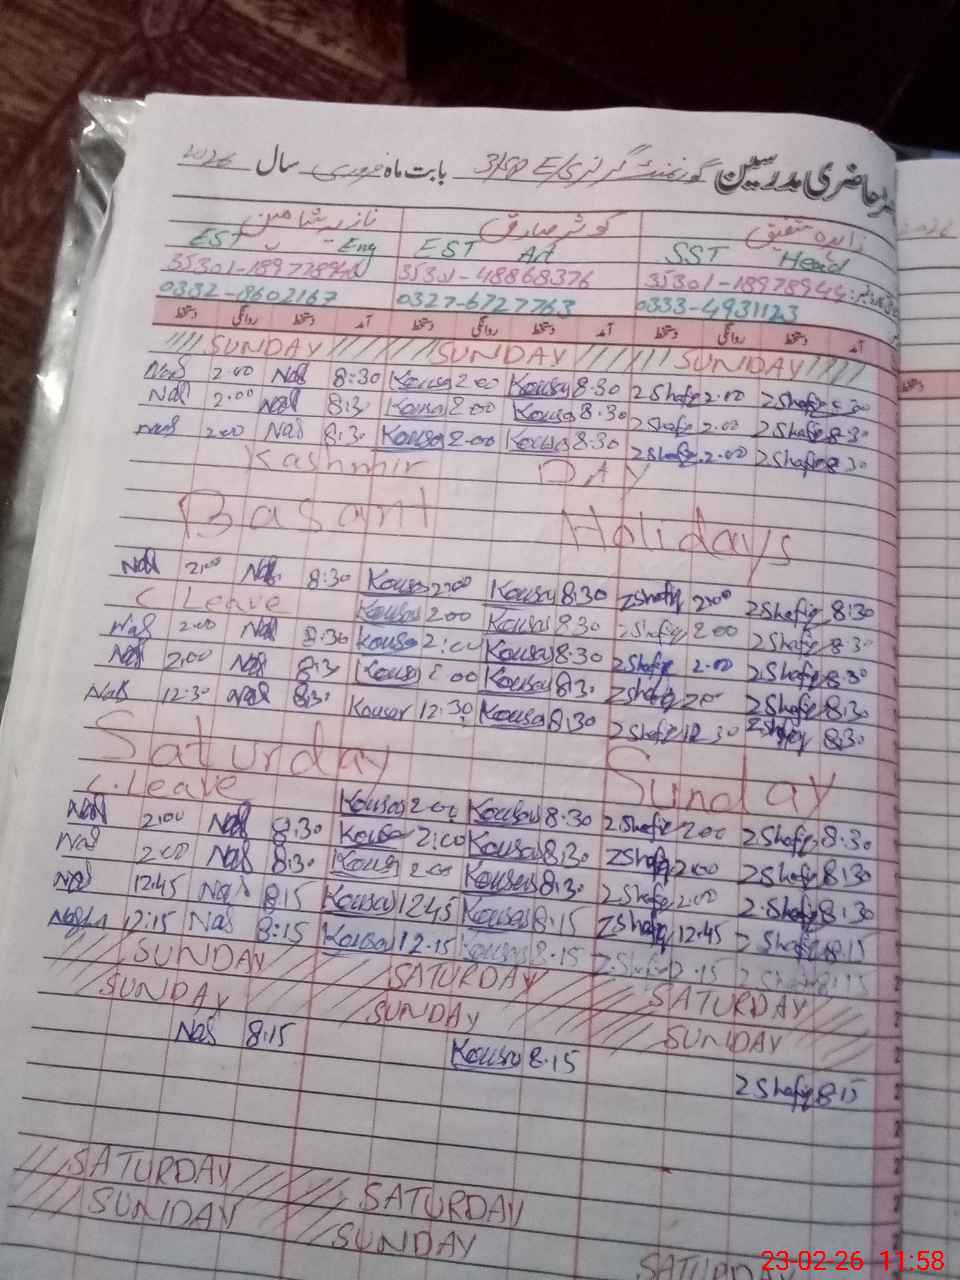 حاضری مدرسین گورنمنٹ گرلز بابت ماہ فروری سال 2026
زاہدہ شفیق کوثر صادق نازیہ شاہین
EST Eng EST Art SST Head
35301-4886837 35301-18978944
0332-8602167 0327-6727763 0333-4931123
دستخط روانگی دستخط آمد دستخط روانگی دستخط آمد دستخط روانگی دستخط آمد
SUNDAY SUNDAY SUNDAY
Nas 2.00 Nas 8:30 Kousar 2.00 Kousar 8.30 ZShafiq 2.00 ZShafiq 8.30
Nas 2.00 Nas 8:30 Kousar 2.00 Kousar 8.30 ZShafiq 2.00 ZShafiq 8.30
Nas 2.00 Nas 8:30 Kousar 2.00 Kousar 8.30 ZShafiq 2.00 ZShafiq 8.30
Kashmir DAY
Basant Holidays
Nas 2:00 Nas 8:30 Kousar 2:00 Kousar 8:30 ZShafiq 2:00 ZShafiq 8:30
C Leave Kousar 2.00 Kousar 8.30 ZShafiq 2.00 ZShafiq 8:30
Nas 2.00 Nas 8:30 Kousar 2:00 Kousar 8:30 ZShafiq 2.00 ZShafiq 8.30
Nas 2:00 Nas 8:30 Kousar 2.00 Kousar 8:30 ZShafiq 2.00 ZShafiq 8:30
Nas 12:30 Nas 8:30 Kousar 12:30 Kousar 8:30 ZShafiq 12:30 ZShafiq 8:30
Saturday Sunday
C.Leave Kousar 2.00 Kousar 8:30 ZShafiq 2.00 ZShafiq 8:30
Nas 2:00 Nas 8:30 Kousar 2:00 Kousar 8:30 ZShafiq 2:00 ZShafiq 8:30
Nas 2:00 Nas 8:30 Kousar 2.00 Kousar 8:30 ZShafiq 2:00 ZShafiq 8:30
Nas 12:45 Nas 8:15 Kousar 12:45 Kousar 8:15 ZShafiq 12:45 ZShafiq 8:15
12:15 Nas 8:15 Kousar 12.15 Kousar 8.15 ZShafiq 12.15 ZShafiq 8:15
SUNDAY SATURDAY SATURDAY
SUNDAY SUNDAY SUNDAY
Nas 8:15 Kousar 8.15 ZShafiq 8:15
SATURDAY SATURDAY SATURDAY
SUNDAY SUNDAY
23-02-26 11:58